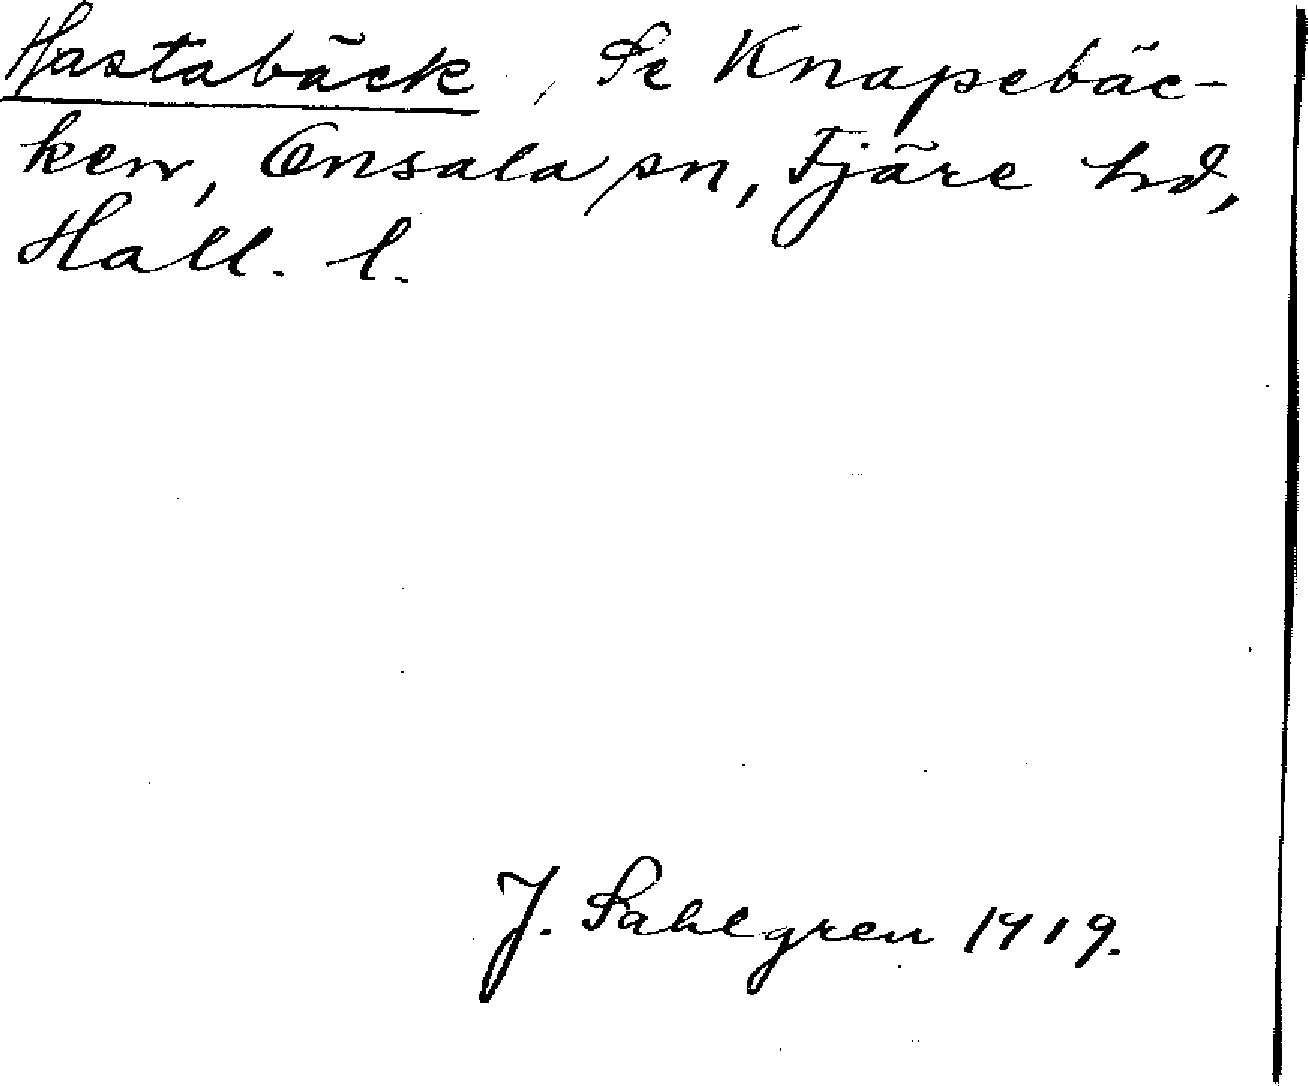 Hastabäck, Se Knapebäc-
ken, Onsala sn, Fjäre hd,
Hall. l.
J. Sahlgren 1919.